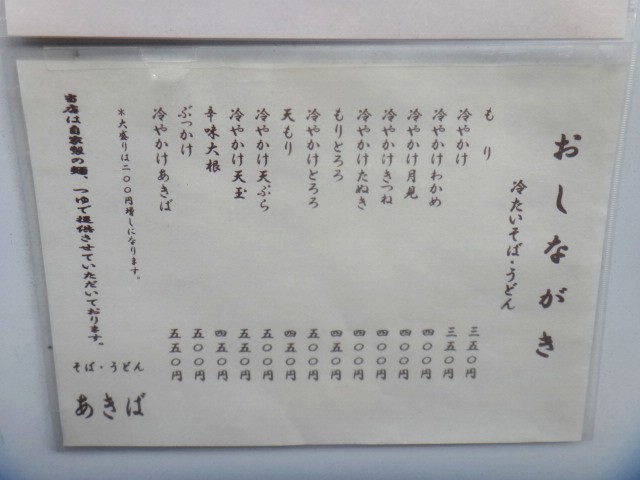 おしながき
冷たいそば・うどん
もり 三五〇円
冷やかけ 三五〇円
冷やかけわかめ 四〇〇円
冷やかけ月見 四〇〇円
冷やかけきつね 四〇〇円
冷やかけたぬき 四〇〇円
もりとろろ 四五〇円
冷やかけとろろ 五〇〇円
天もり 四五〇円
冷やかけ天ぷら 五〇〇円
冷やかけ天玉 五〇〇円
辛味大根 四五〇円
ぶっかけ 五〇〇円
冷やかけあきば 五五〇円
※大盛りは二〇〇円増しになります。
当店は自家製の麺、つゆで提供させていただいております。
そば・うどん
あきば